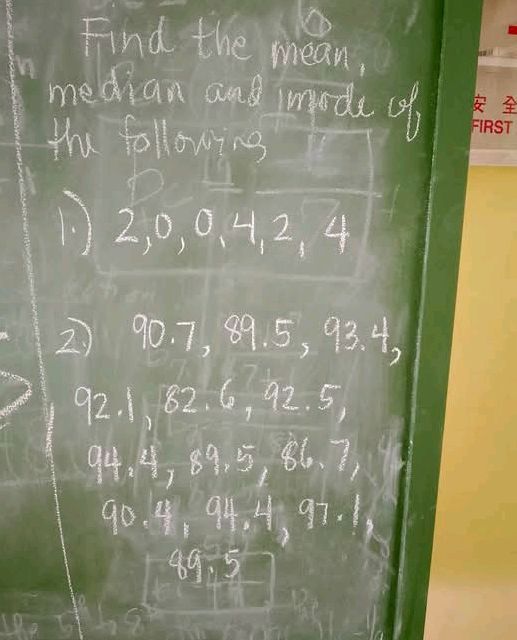 Find the mean,
median and mode of
the following
1.) 2,0,0,4,2,4
2) 90.7, 89.5, 93.4,
92.1, 82.6, 92.5,
94.4, 89.5, 86.7,
90.4, 94.4, 97.1,
89.5
安全
FIRST